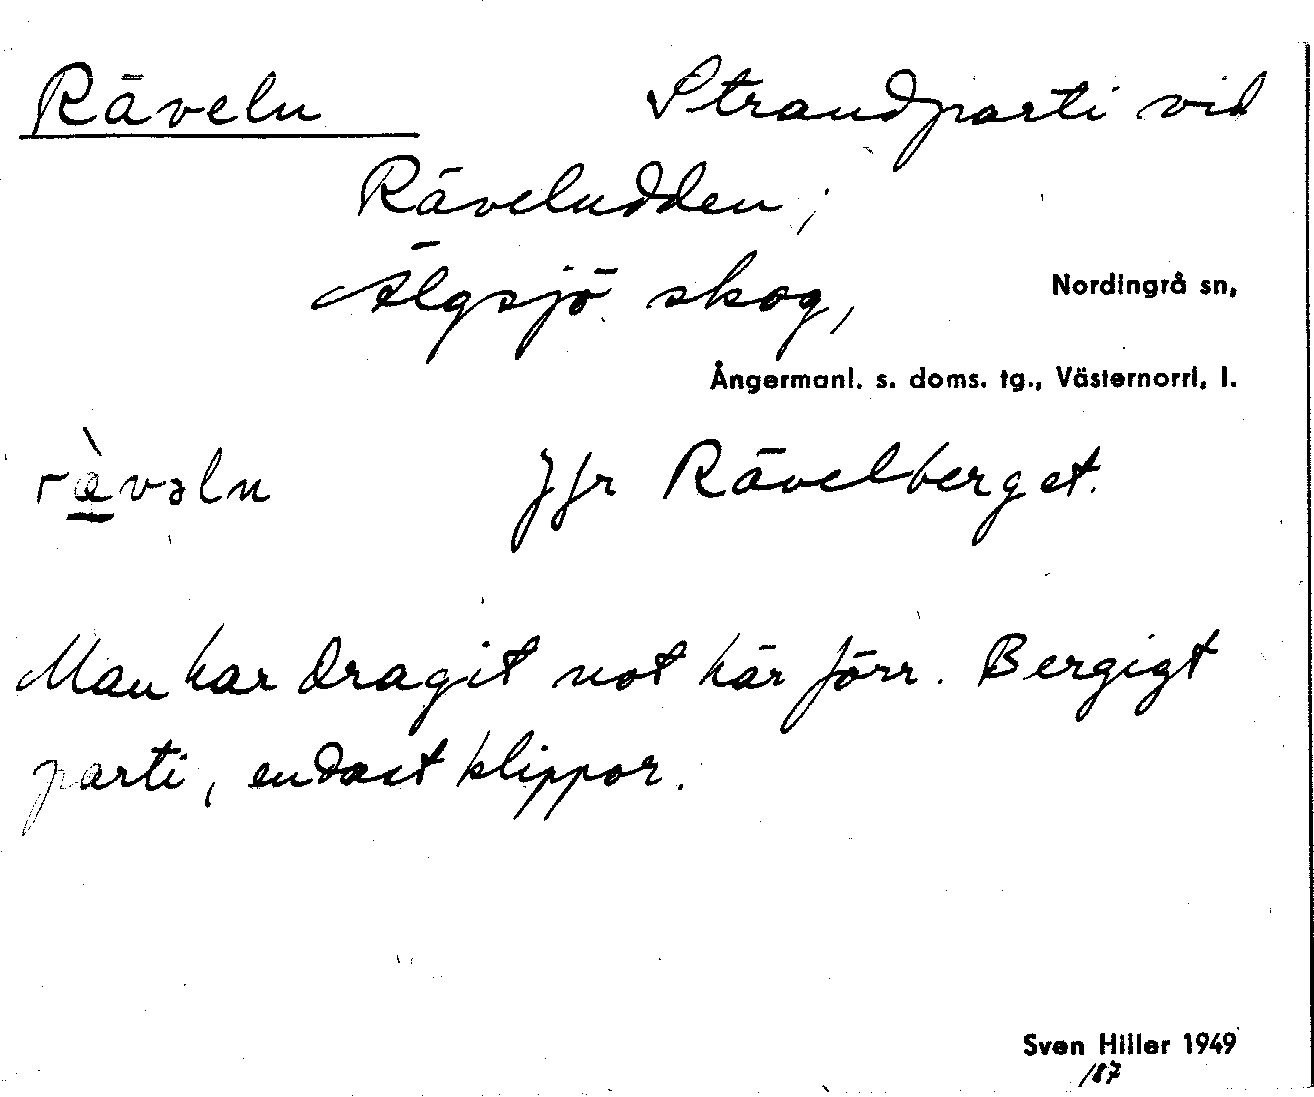 Räveln Strandparti vid
Räveludden;
Älgsjö skog,
Nordingrå sn,
Ångermanl. s. doms. tg., Västernorrl. l.
rä̀vəln Jfr Rävelberget.
Man har dragit not här förr. Bergigt
parti, endast klippor.
Sven Hiller 1949
/87